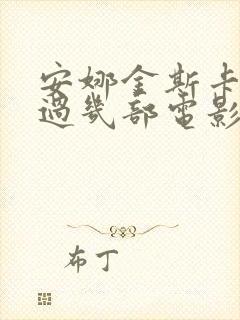 安娜金斯卡
過幾部電影
布丁